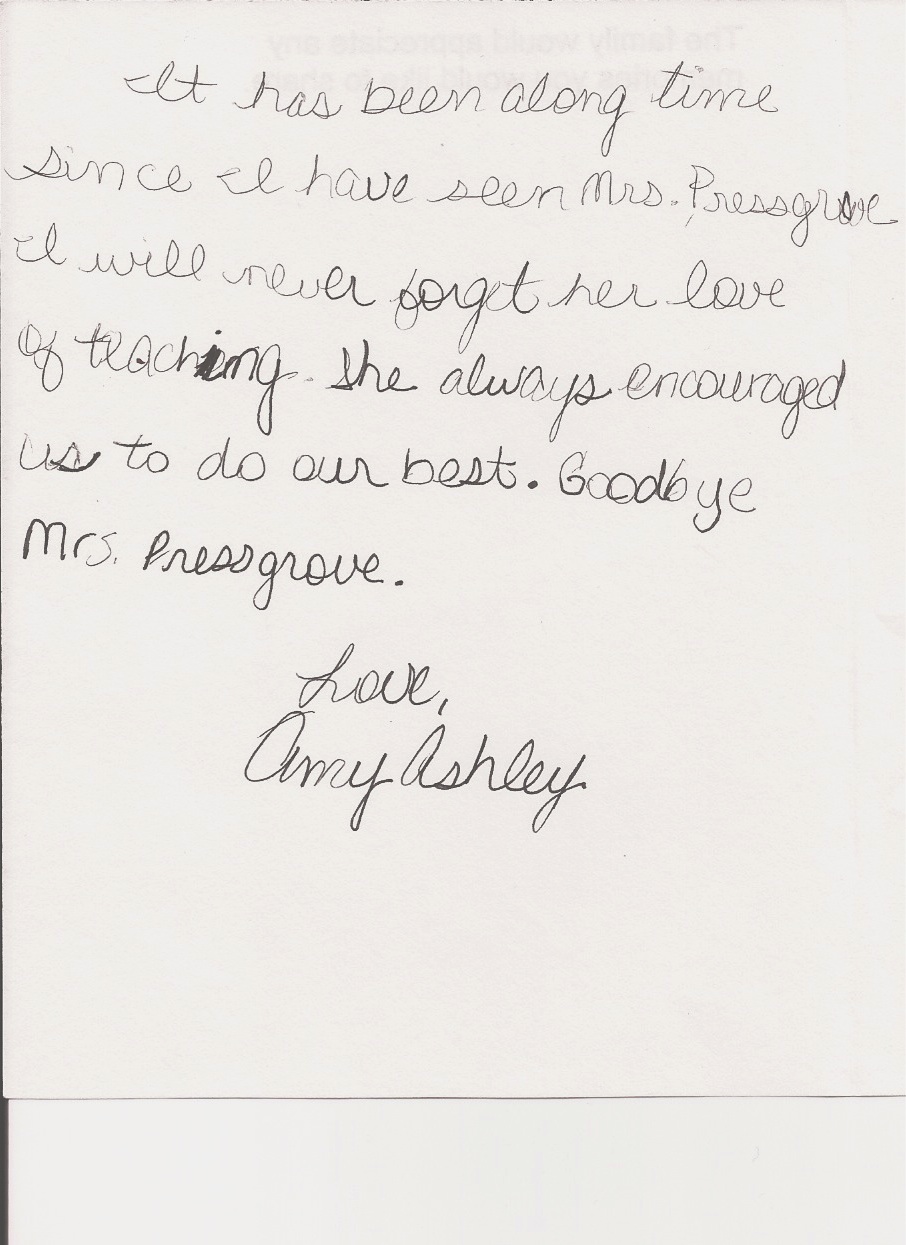 The family would appreciate any
memories you would like to share.
It has been along time
since I have seen Mrs. Pressgrove
I will never forget her love
of teaching. She always encouraged
us to do our best. Goodbye
Mrs. Pressgrove.
Love,
Amy Ashley